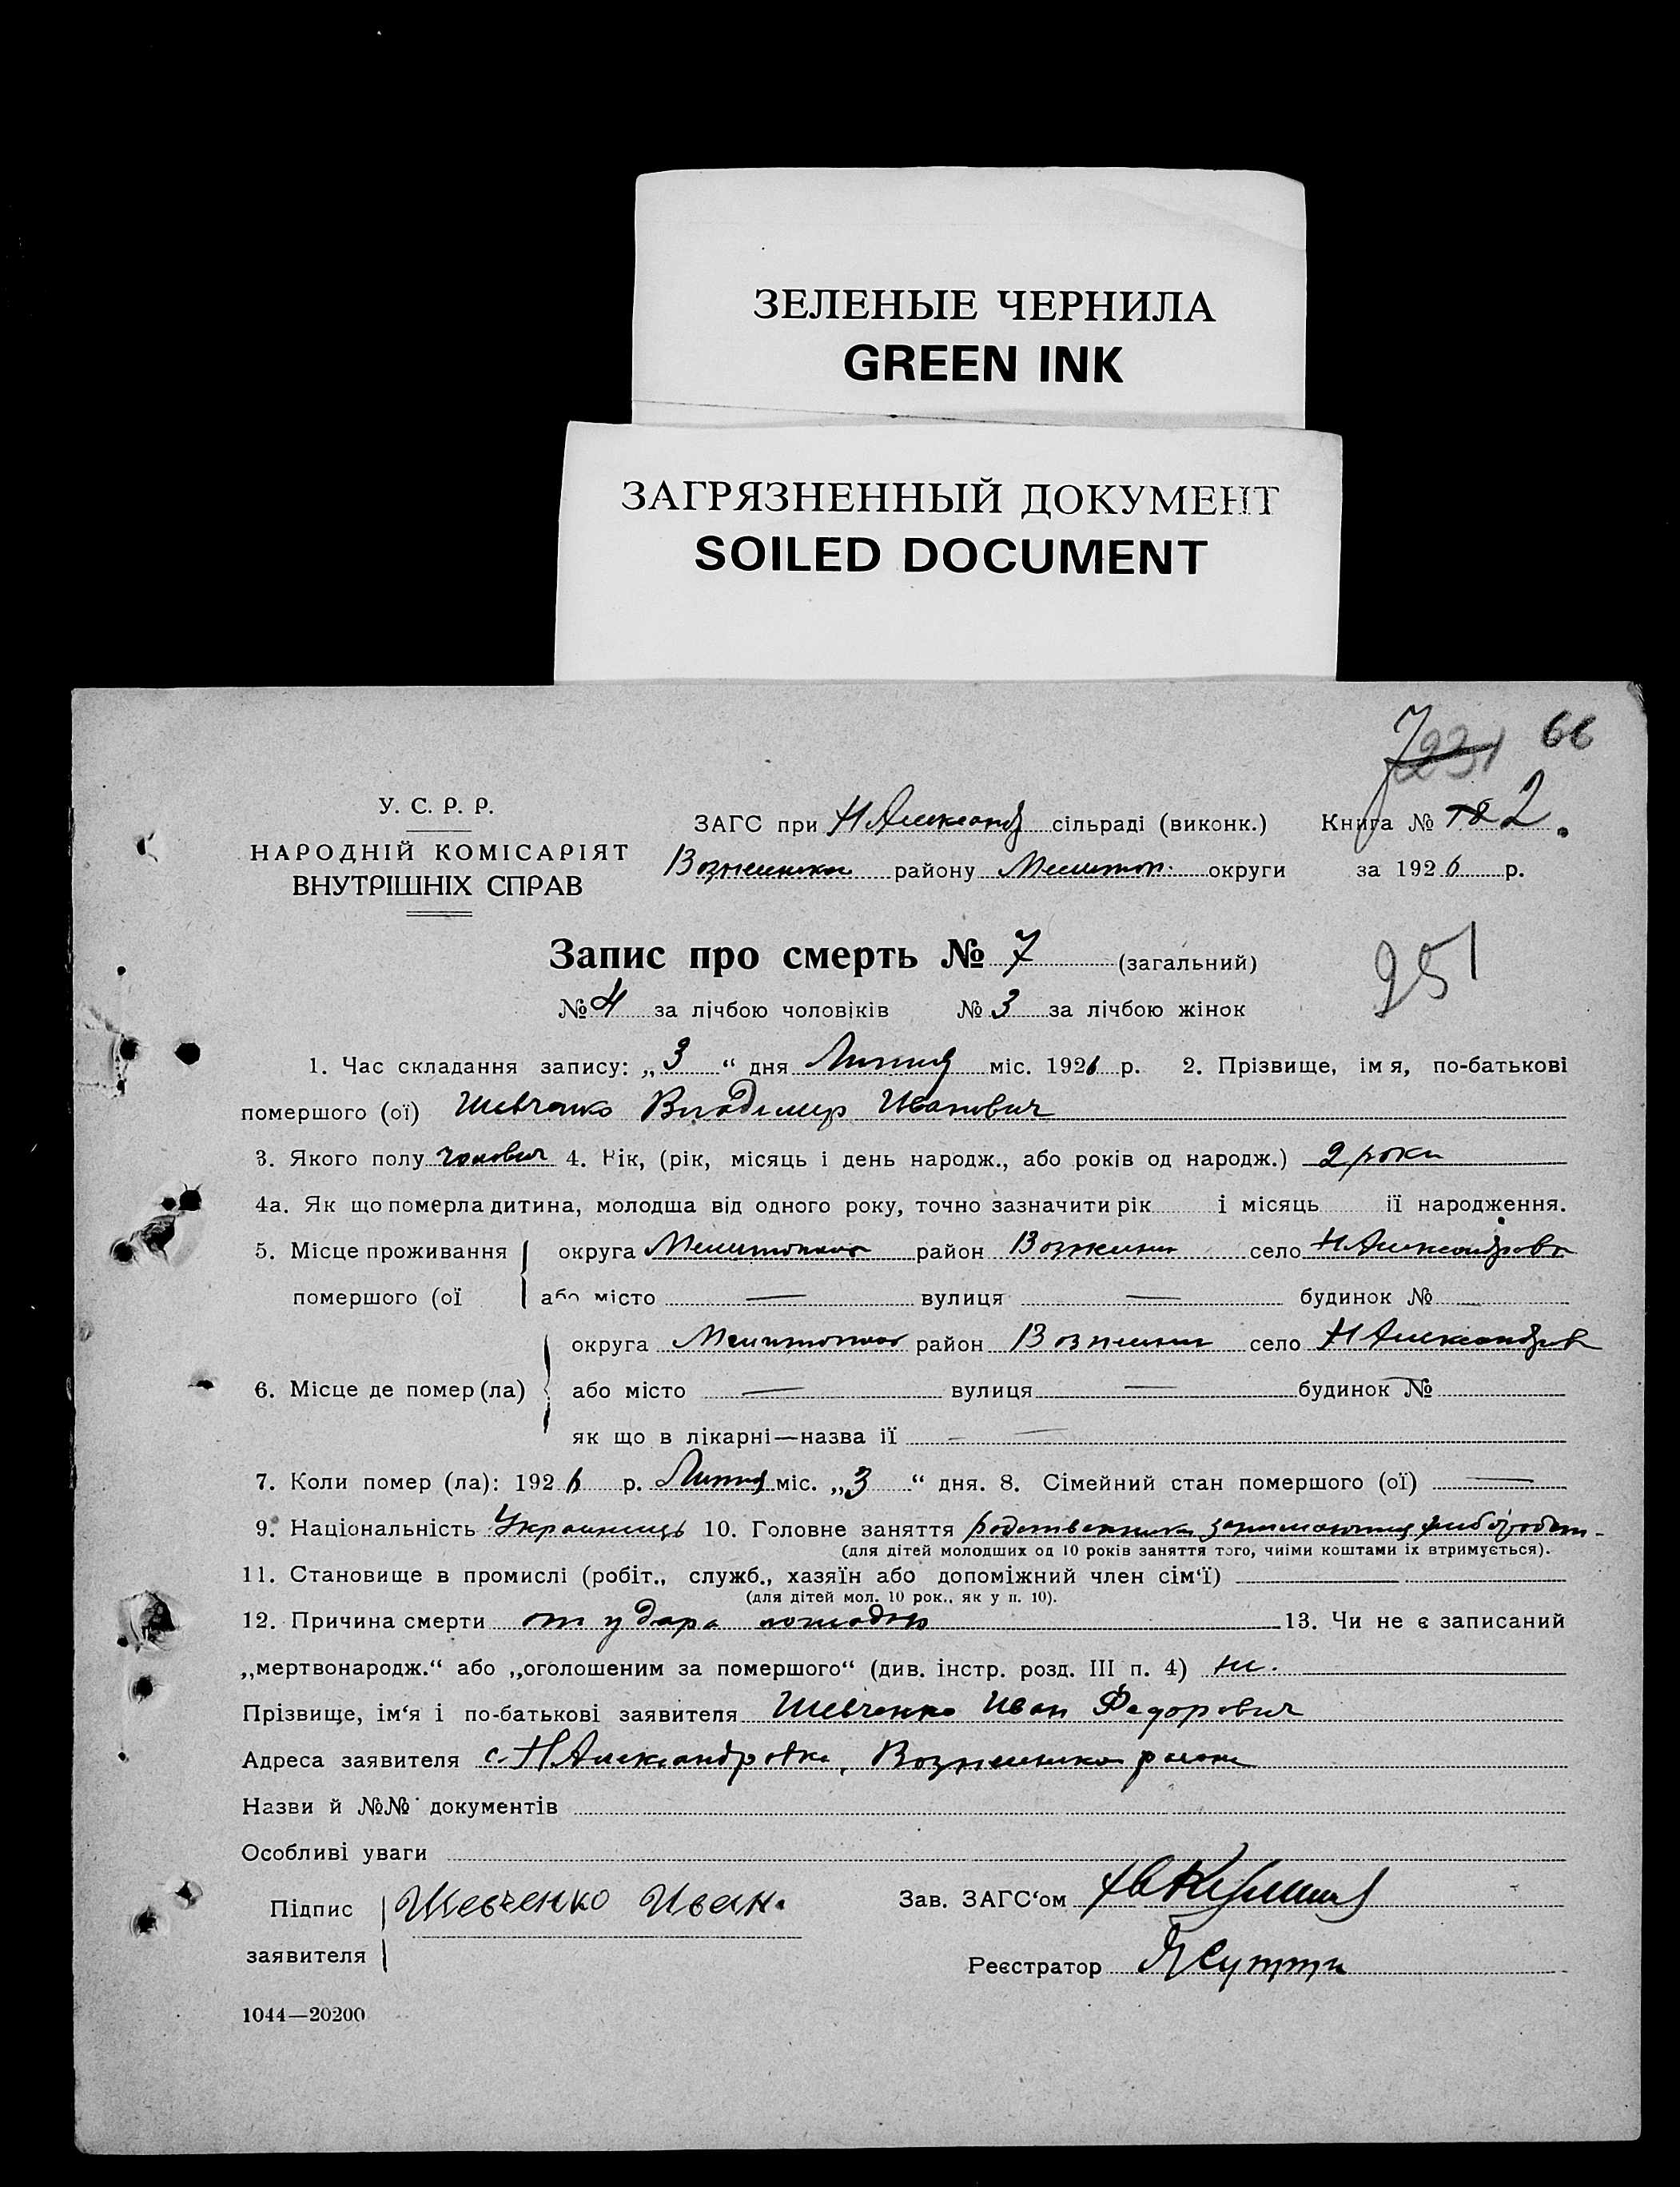 ЗЕЛЕНЫЕ ЧЕРНИЛА
GREEN INK
ЗАГРЯЗНЕННЫЙ ДОКУМЕНТ
SOILED DOCUMENT
7 231 66
У. С. Р. Р.
НАРОДНІЙ КОМІСАРІЯТ
ВНУТРІШНІХ СПРАВ
ЗАГС при Н Александ сільраді (виконк.) Книга № 2
району Мелитоп. округи за 1926 р.
Запис про смерть № 7 (загальний)
251
№ 4 за лічбою чоловіків № 3 за лічбою жінок
1. Час складання запису: „3“ дня Липня міс. 1926 р. 2. Прізвище, імя, по-батькові
помершого (ої) Шевченко Владимир Иванович
3. Якого полу чолович 4. Рік, (рік, місяць і день народж., або років од народж.) 2 роки
4а. Як що померла дитина, молодша від одного року, точно зазначити рік і місяць її народження.
5. Місце проживання округа Мелитопол район село Н Александровк
помершого (ої або місто — вулиця — будинок №
округа Мелитопол район село Н Александров
6. Місце де помер (ла) або місто — вулиця — будинок №
як що в лікарні—назва її —
7. Коли помер (ла): 1926 р. Липня міс. „3“ дня. 8. Сімейний стан помершого (ої) —
9. Національність Украинець 10. Головне заняття
(для дітей молодших од 10 років заняття того, чиїми коштами їх втримується).
11. Становище в промислі (робіт., служб., хазяїн або допоміжний член сім‘ї) —
(для дітей мол. 10 рок., як у п. 10).
12. Причина смерти от удара лошадью 13. Чи не є записаний
„мертвонародж.“ або „оголошеним за помершого“ (див. інстр. розд. III п. 4) ні.
Прізвище, ім‘я і по-батькові заявителя Шевченко Иван Федорович
Адреса заявителя с. Н Александровка,
Назви й №№ документів
Особливі уваги
Підпис Шевченко Иван. Зав. ЗАГС‘ом
заявителя
Реєстратор
1044—20200